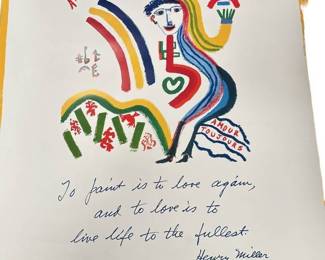 AMOUR
TOUJOURS
To paint is to love again,
and to love is to
live life to the fullest
Henry Miller